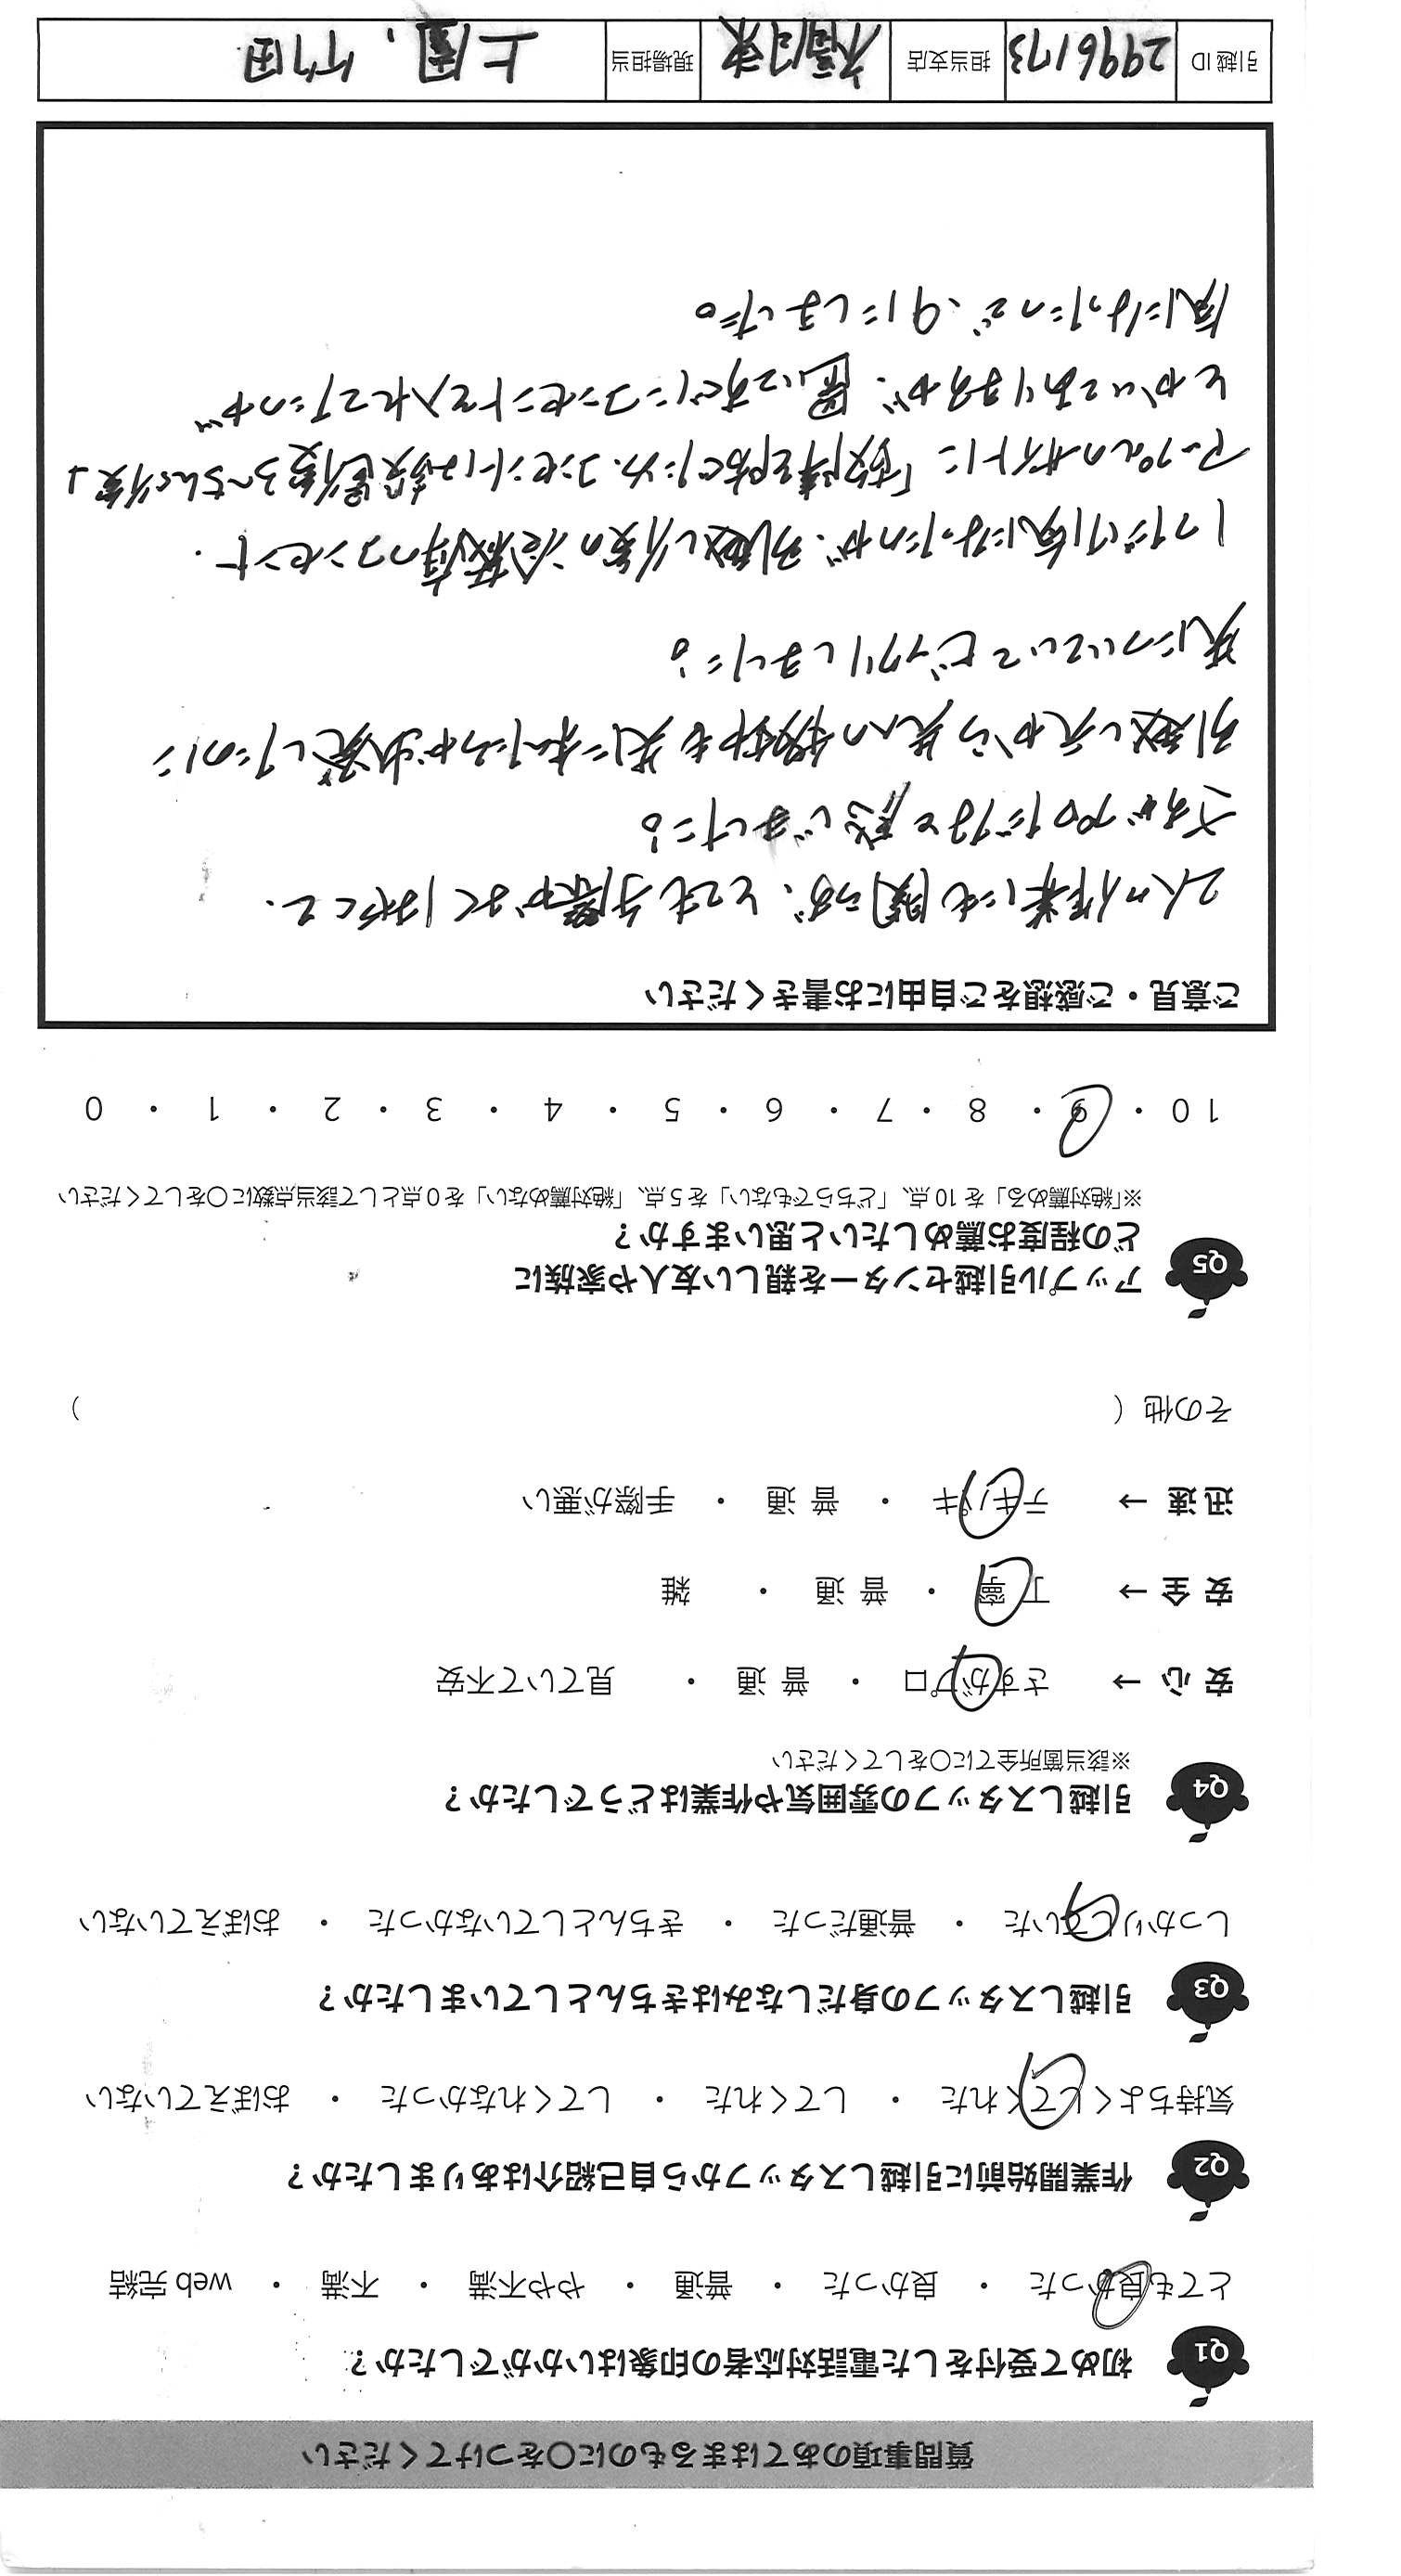 質問事項のあてはまるものに〇をつけてください
Q1 初めて受付をした電話対応者の印象はいかがでしたか？
とても良かった ・ 良かった ・ 普通 ・ やや不満 ・ 不満 ・ web 完結
Q2 作業開始前に引越しスタッフから自己紹介はありましたか？
気持ちよくしてくれた ・ してくれた ・ してくれなかった ・ おぼえていない
Q3 引越しスタッフの身だしなみはきちんとしていましたか？
しっかりしていた ・ 普通だった ・ きちんとしていなかった ・ おぼえていない
Q4 引越しスタッフの雰囲気や作業はどうでしたか？
※該当箇所全てに〇をしてください
安 心 → さすがプロ ・ 普 通 ・ 見ていて不安
安 全 → 丁 寧 ・ 普 通 ・ 雑
迅 速 → テキパキ ・ 普 通 ・ 手際が悪い
その他（ ）
Q5 アップル引越センターを親しい友人や家族に
どの程度お薦めしたいと思いますか？
※「絶対薦める」を 10 点、「どちらでもない」を 5 点、「絶対薦めない」を 0 点として該当点数に〇をしてください
10 ・ 9 ・ 8 ・ 7 ・ 6 ・ 5 ・ 4 ・ 3 ・ 2 ・ 1 ・ 0
ご意見・ご感想をご自由にお書きください
2人の作業にも関らず、とても手際がよくはやくて、
さすがプロだなと感じました。
引越し元から先への移動も先に私たちが出発したのに
先についていてビックリしました。
1つだけ気になったのが、引越し後の冷蔵庫のコンセント。
アップルのサイトに「故障を防ぐため、コンセントは設置後3〜5hの後」
とかいてありますが、置いてすぐにコンセントを入れてたのが
気になったので、9にしました。
引越 ID 2996173 担当支店 福岡東 現場担当 上園、竹田